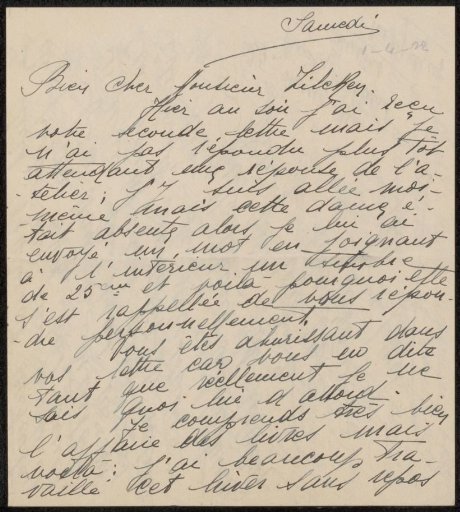 Samedi
1-4-22
Bien cher Monsieur Zilcken.
Hier au soir j'ai reçu
votre seconde lettre mais je
n'ai pas répondu plus tôt
attendant une réponse de l'a-
telier; j'y suis allée moi-
même mais cette dame é-
tait absente alors je lui ai
envoyé un mot en joignant
à l'intérieur un timbre
de 25 et voila pourquoi elle
s'est rappellée de vous répon-
dre personnellement.
Vous êtes ahurissant dans
vos lettre car vous en dite
tant que reellement je ne
sais quoi lire d'abord.
Je comprends très bien
l'affaire des livres mais
voila: j'ai beaucoup tra-
vaillé cet hiver sans repos